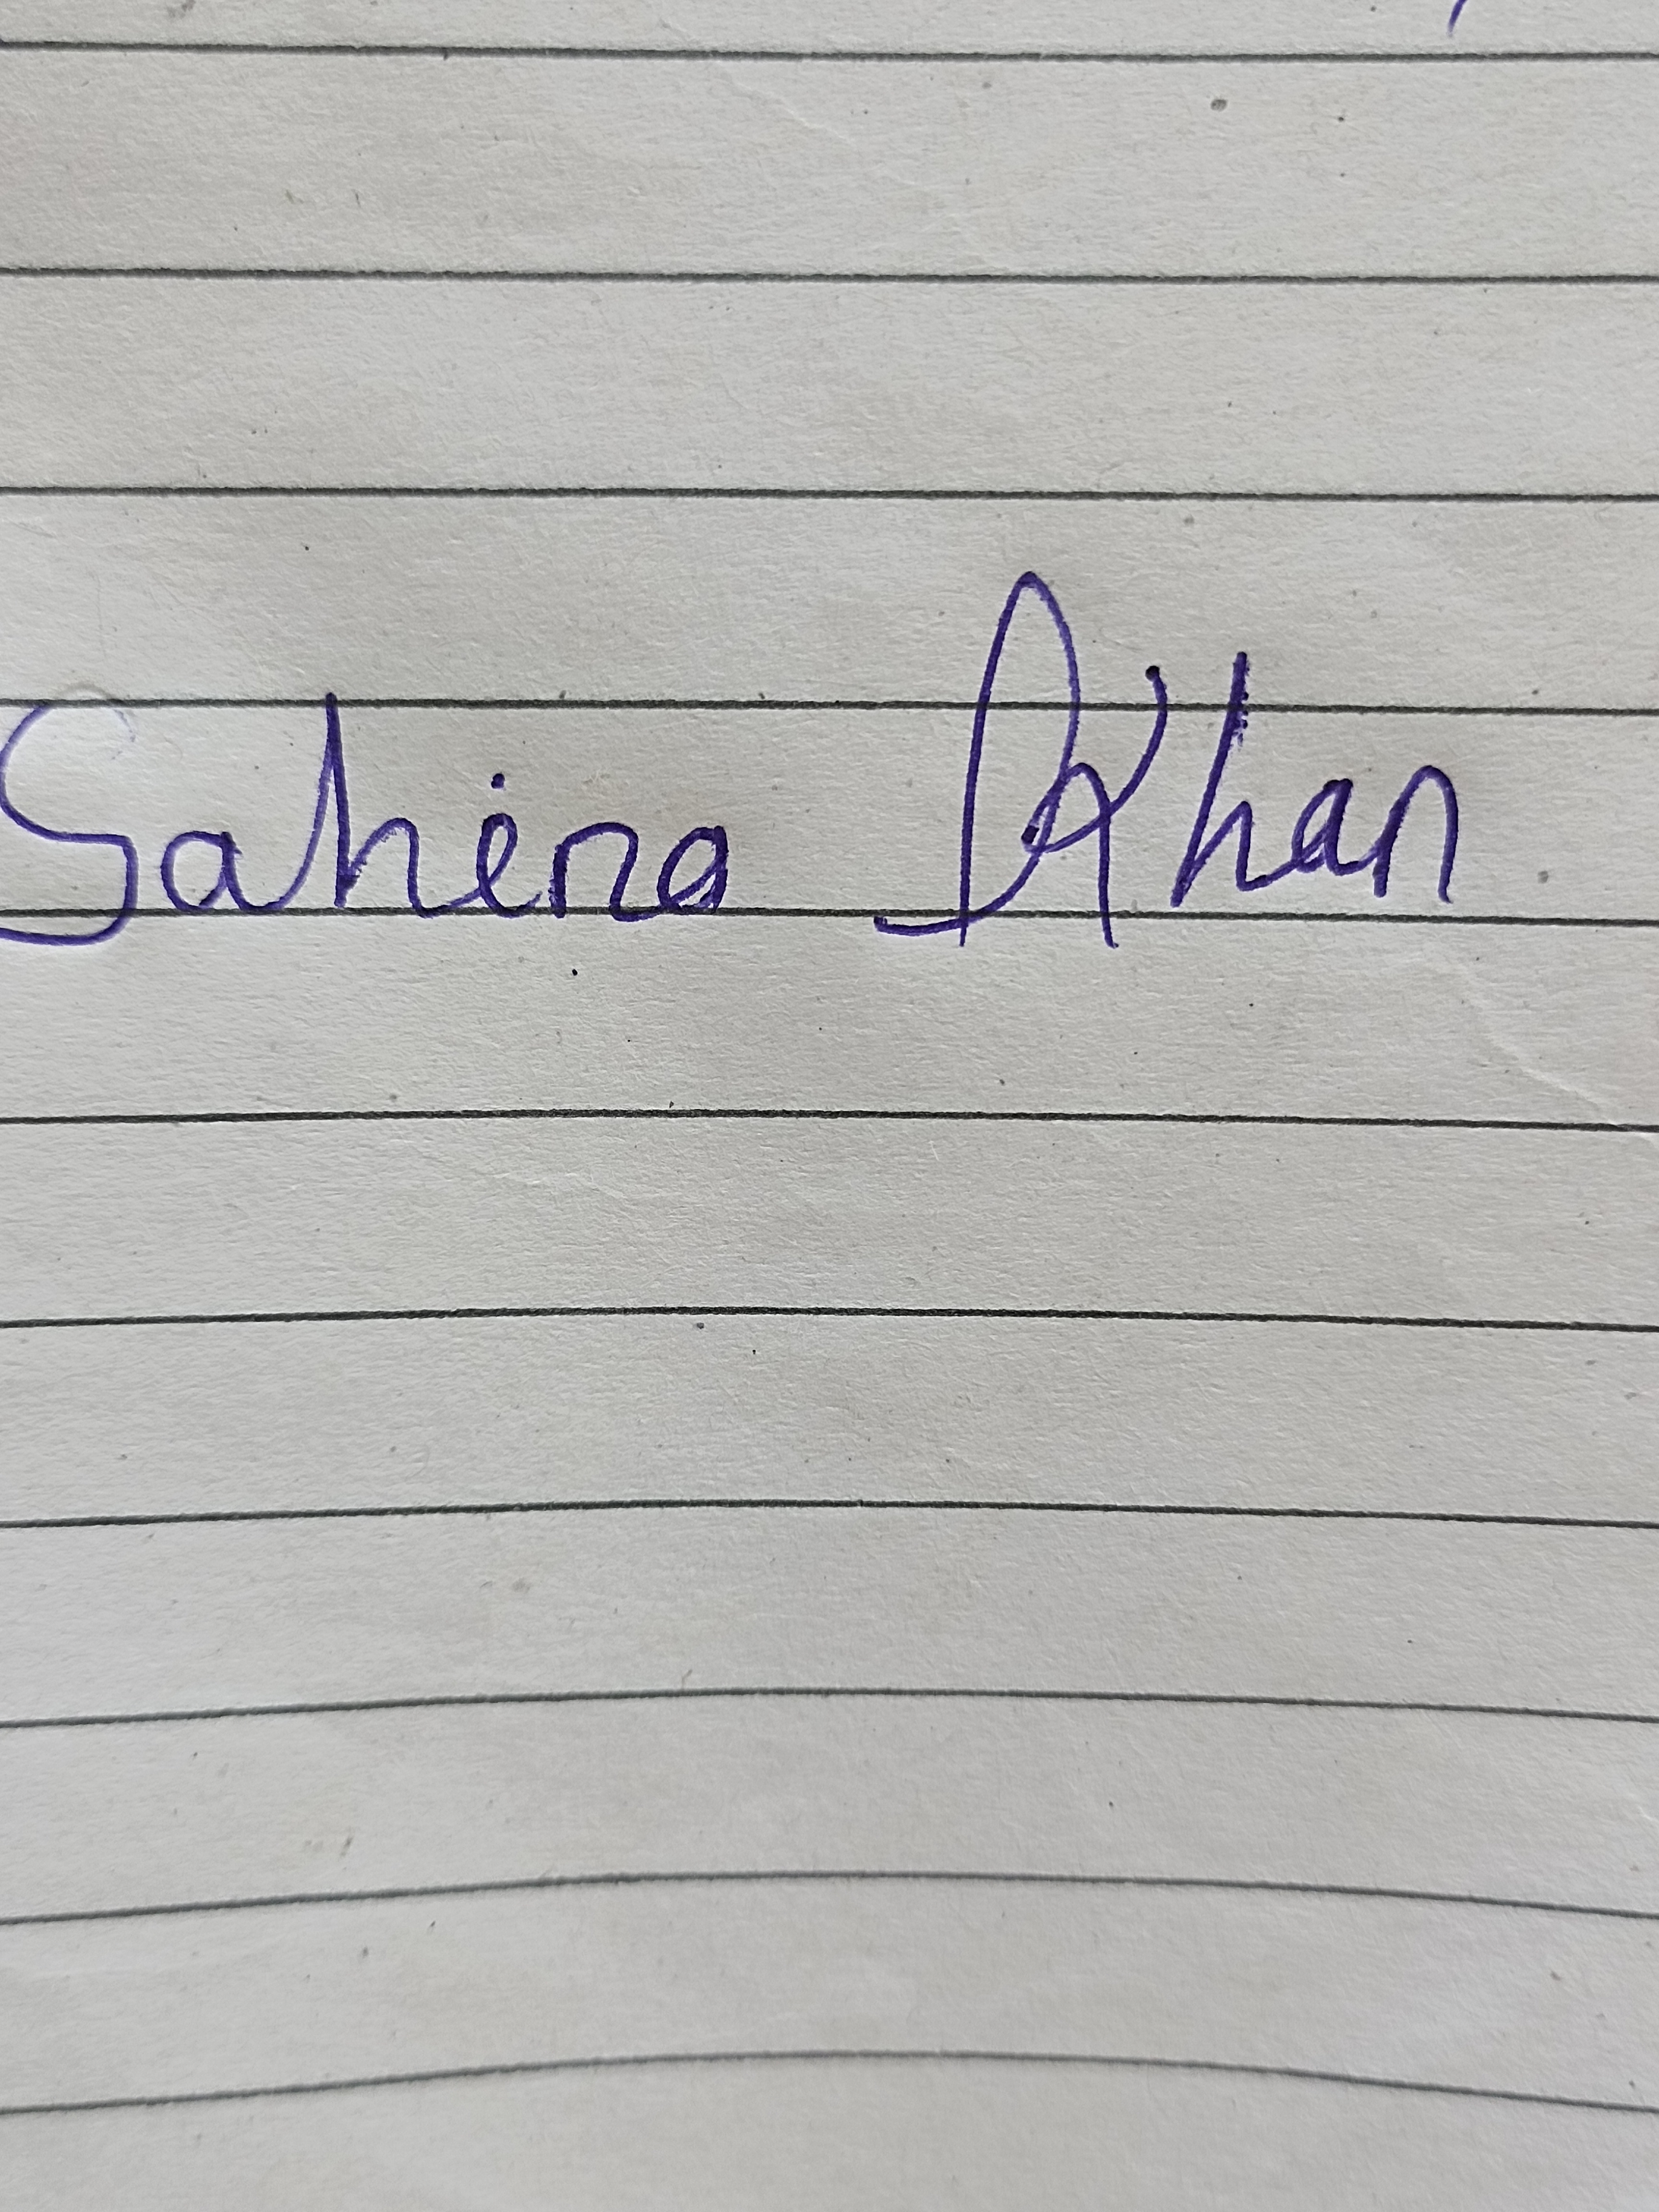 Sahina Khan